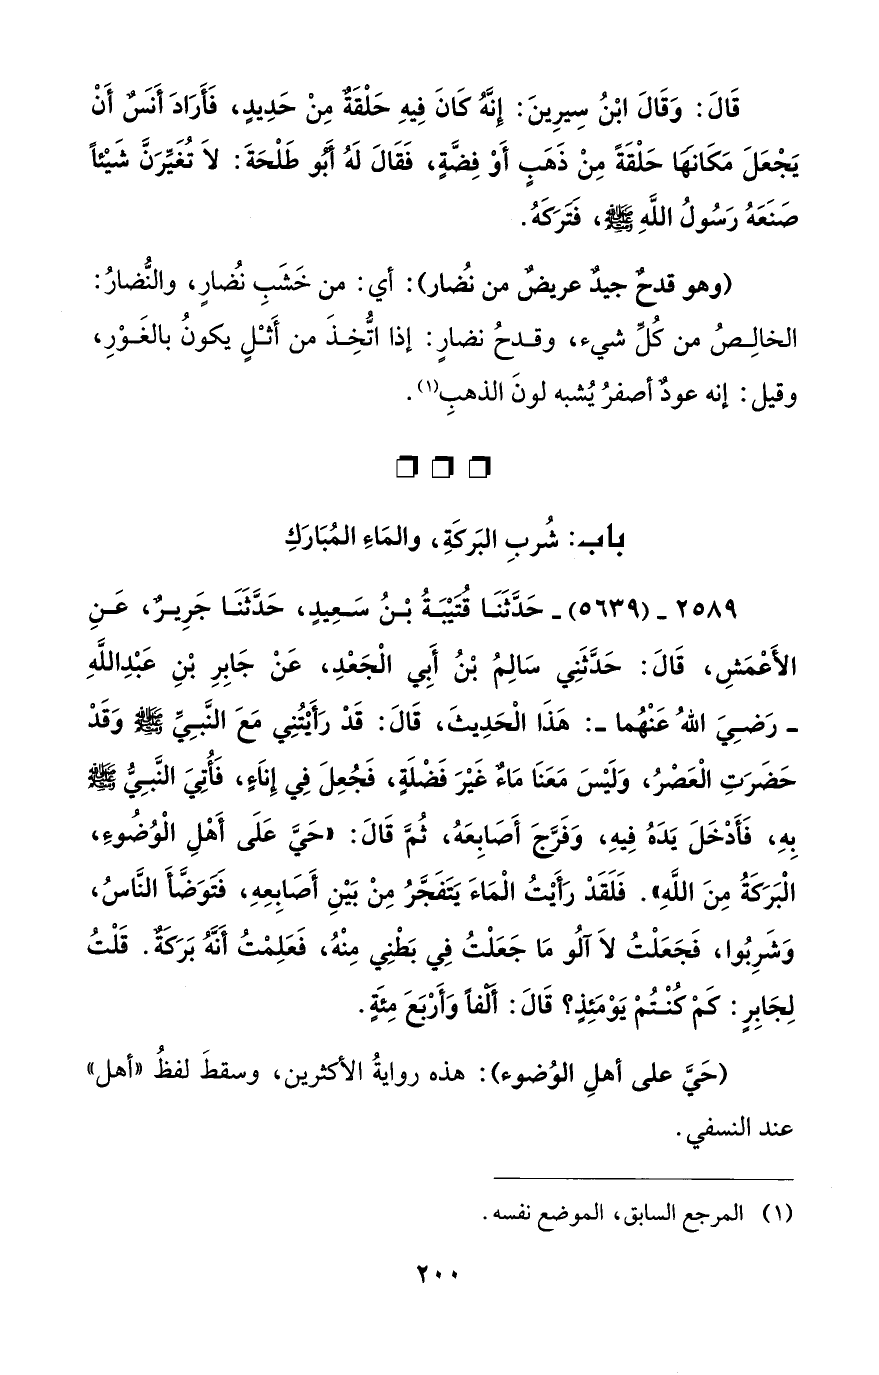 قَالَ: وَقَالَ ابْنُ سِيرِينَ: إِنَّهُ كَانَ فِيهِ حَلْقَةٌ مِنْ حَدِيدٍ، فَأَرَادَ أَنَسٌ أَنْ
يَجْعَلَ مَكَانَهَا حَلْقَةً مِنْ ذَهَبٍ أَوْ فِضَّةٍ، فَقَالَ لَهُ أَبُو طَلْحَةَ: لاَ تُغَيِّرَنَّ شَيْئاً
صَنَعَهُ رَسُولُ اللَّهِ ﷺ، فَتَرَكَهُ.
(وهو قدحٌ جيدٌ عريضٌ من نُضار): أي: من خَشَبِ نُضارٍ، والنُّضارُ:
الخالِصُ من كُلِّ شيء، وقدحُ نضارٍ: إذا اتُّخِذَ من أَثْلٍ يكونُ بالغَوْرِ،
وقيل: إنه عودٌ أصفرُ يُشبه لونَ الذهبِ(١).
باب: شُربِ البَرَكَةِ، والمَاءِ المُبَارَكِ
٢٥٨٩ ـ (٥٦٣٩) ـ حَدَّثَنَا قُتَيْبَةُ بْنُ سَعِيدٍ، حَدَّثَنَا جَرِيرٌ، عَنِ
الأَعْمَشِ، قَالَ: حَدَّثَنِي سَالِمُ بْنُ أَبِي الْجَعْدِ، عَنْ جَابِرِ بْنِ عَبْدِاللَّهِ
ـ رَضِيَ اللهُ عَنْهُما ـ: هَذَا الْحَدِيثَ، قَالَ: قَدْ رَأَيْتُنِي مَعَ النَّبِيِّ ﷺ وَقَدْ
حَضَرَتِ الْعَصْرُ، وَلَيْسَ مَعَنَا مَاءٌ غَيْرَ فَضْلَةٍ، فَجُعِلَ فِي إِنَاءٍ، فَأُتِيَ النَّبِيُّ ﷺ
بِهِ، فَأَدْخَلَ يَدَهُ فِيهِ، وَفَرَّجَ أَصَابِعَهُ، ثُمَّ قَالَ: «حَيَّ عَلَى أَهْلِ الْوُضُوءِ،
الْبَرَكَةُ مِنَ اللَّهِ». فَلَقَدْ رَأَيْتُ الْمَاءَ يَتَفَجَّرُ مِنْ بَيْنِ أَصَابِعِهِ، فَتَوَضَّأَ النَّاسُ،
وَشَرِبُوا، فَجَعَلْتُ لاَ آلُو مَا جَعَلْتُ فِي بَطْنِي مِنْهُ، فَعَلِمْتُ أَنَّهُ بَرَكَةٌ. قُلْتُ
لِجَابِرٍ: كَمْ كُنْتُمْ يَوْمَئِذٍ؟ قَالَ: أَلْفاً وَأَرْبَعَ مِئَةٍ.
(حَيَّ على أهلِ الوُضوء): هذه روايةُ الأكثرين، وسقطَ لفظُ «أهل»
عند النسفي.
(١) المرجع السابق، الموضع نفسه.
٢٠٠